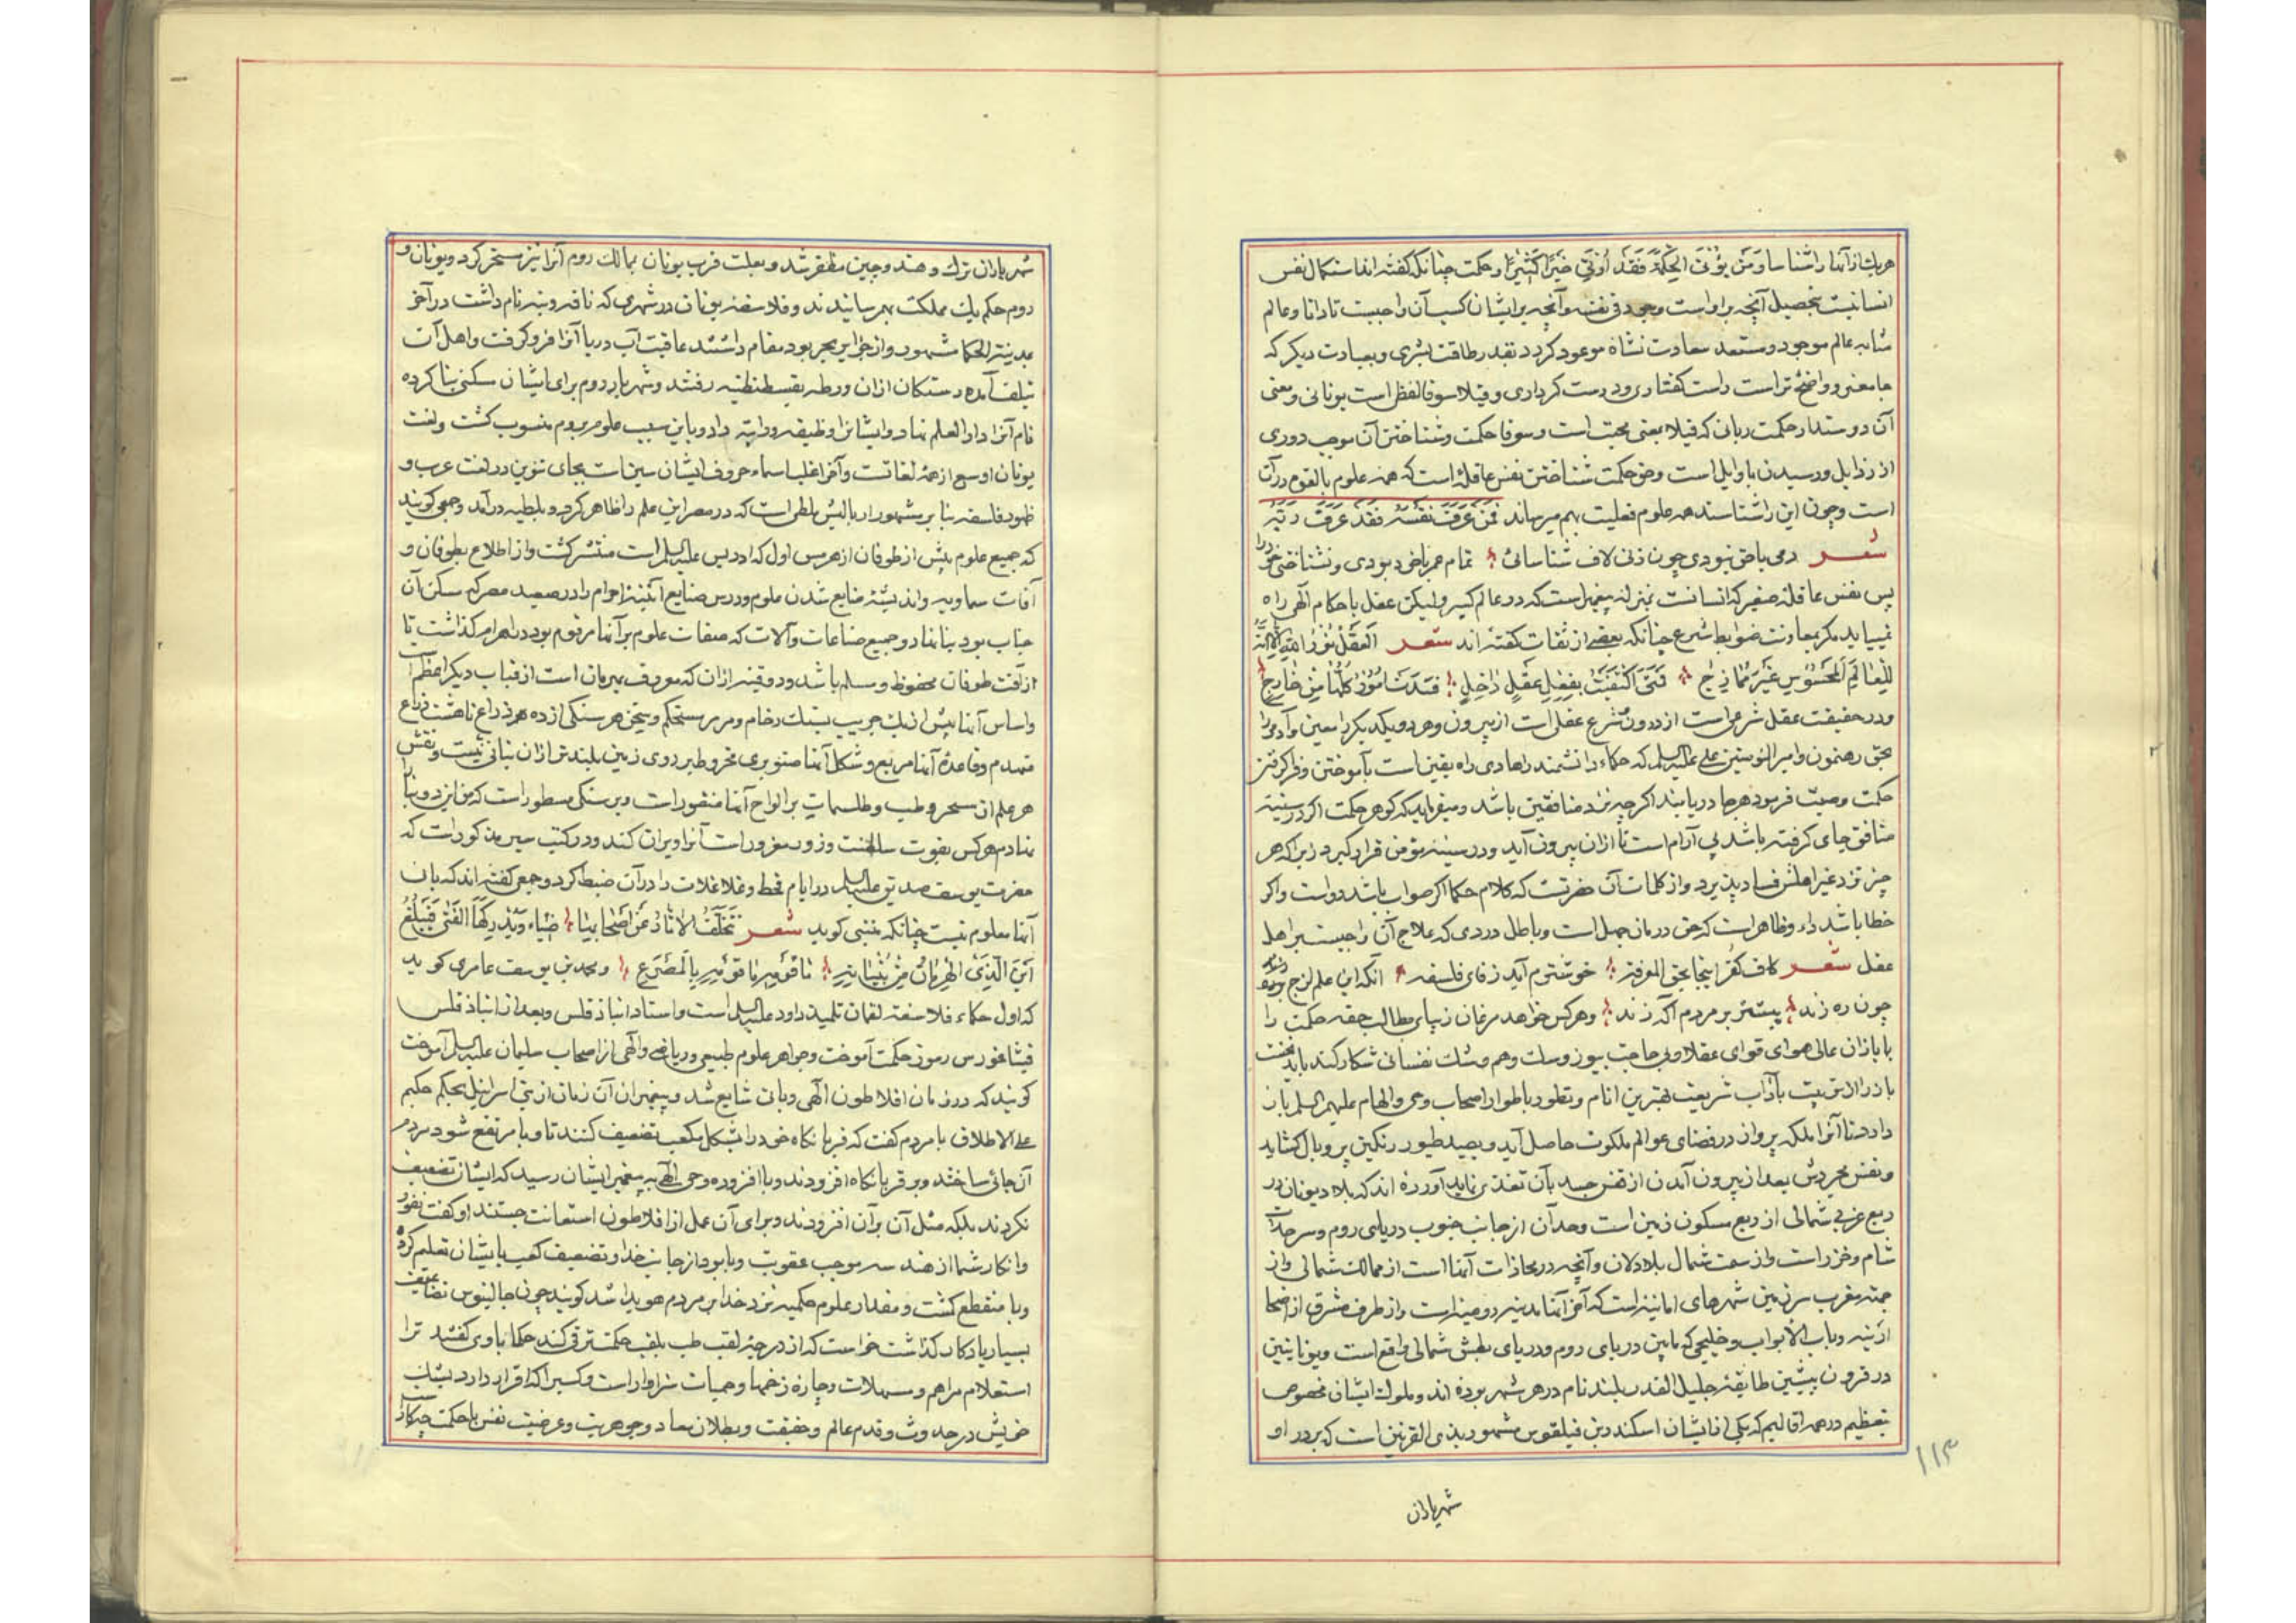 هریك از آنها را شناسا وَمَن یُؤْتَ الحِکْمَةَ فَقَدْ اُوتِیَ خَیْرًا کَثِیرًا و حکمت چنانکه گفته اند استکمال نفس
انسانیست بتحصیل آنچه بر او است وجود فی نفسه و آنچه بر ایشان کسب آن واجبست تا دانا و عالم
مشابه عالم موجود و مستعد سعادت نشاة موعود کردد بقدر طاقت بشری و بعبارت دیکر که
جامعتر و واضح تر است راست کفتاری و درست کرداری و فیلاسوفا لفظی است یونانی و معنی
آن دوستدار حکمت زیرا که فیلا بمعنی محبت است و سوفا حکمت و شناختن آن موجب دوری
از رذایل و رسیدن باوایل است و حق حکمت شناختن نفس عاقله است که همه علوم بالقوه در آن
است و چون این را شناسند همه علوم فعلیت بهم میرساند فَمَن عَرَفَ نَفْسَهُ فَقَد عَرَفَ رَبَّهُ
شعر دمی با حق نبودی چون زنی لاف شناسائی تمام عمر با خود بودی و نشناختی خود را
پس نفس عاقله صغیر که انسانست بمنزله پیغمبر است که در عالم کبیر و لیکن عقل باحکام الهی راه
نمییابد مکر بمعاونت ضوابط شرع چنانکه بعضی از ثقات کفته اند شعر العَقْلُ نُورُ اللهِ اِلّا اَنَّهُ
لِلْعَالَمِ المَحْسُوسِ غَیْرُ مُمَازِجِ فَمَتَی اکْتَفَیْتَ بِفِعْلِ عَقْلٍ دَاخِلٍ فَسَدَتْ اُمُورٌ کُلُّهَا مِن خَارِجِ
و در حقیقت عقل شرعی است از درون و شرع عقلی است از بیرون و هر دو یکدیکر را معین و آدمی را
بحق رهنمون و امیر المؤمنین علی علیه السلم که حکماء دانشمند را هادی راه یقین است بآموختن و فرا کرفتن
حکمت وصیت فرمود هر جا دریابند اکرچه نزد منافقین باشد و میفرماید که کوهر حکمت اکر در سینه
منافق جای کرفته باشد بی آرام است تا از ان بیرون آید و در سینه مؤمن قرار کیرد زیرا که هر
چیز نزد غیر اهلش فساد پذیرد و از کلمات آن حضرتست که کلام حکما اکر صواب باشد دوا است و اکر
خطا باشد داء و ظاهر است که حق درمان جهل است و باطل دردی که علاج آن واجبست بر اهل
عقل شعر کاف کفر اینجا بحق المعرفة خوشترم آید ز فای فلسفه زانکه این علم لزج
چون ره زند بیشتر بر مردم آکه زند و هر کس خواهد مرغان زیبای مطالب حقه حکمت را
با بازان عالی هوای قوای عقلا و بی حاجت بیوز و سك وهم و مشك نفسانی شکار کند باید نخست
باز را لا تربیت بآداب شریعت بهترین انام و بطور باطوار اصحاب وحی و الهام علیهم السلم باز
دارد تا آنرا ملکه پرواز در فضای عوالم ملکوت حاصل آید و بصید طیور رنکین پر و بال کشاید
و نفس مجردش بعد از بیرون آمدن از قفس جسد بآن تغذی نماید آورده اند که بلاد یونان در
ربع غربی شمالی از ربع مسکون زمین است و حد آن از جانب جنوب دریای روم و سرحدات
شام و خزر است و از سمت شمال بلاد لان و آنچه در محاذات آنها است از ممالك شمالی و از
جهة مغرب سرزمین شهرهای امانیه است که آخر آنها مدینه رومیه است و از طرف مشرق از اضحا
ارمنیه و باب الابواب و خلیجی که مابین دریای روم و دریای بطش شمالی واقع است و یونانیین
در قرون پیشین طایفه جلیل القدر بلند نام در هر شهر بوده اند و ملوك ایشان مخصوص
بتعظیم در همه اقالیم که یکی از ایشان اسکندر بن فیلقوس مشهور بذی القرنین است که بر در او
۱۱۳
شهریاران
شهریاران ترك و هند و چین مظفر شد و بعلت قرب یونان بممالك روم آنرا نیز مسخر کرد و یونان و
روم حکم یك مملکت بهم رسانیدند و فلاسفه یونان در شهری که نام داشت در آخر
بمدینة الحکما مشهور و از جزایر بحر بود مقام داشتند عاقبت آب دریا آنرا فرو کرفت و اهل آن
بتلف آمده رستکان از ان ورطه بقسطنطنیه رفتند و شهریار روم برای ایشان سکنی بنا کرده
نام آنرا دار العلم نهاد و ایشانرا وظیفه و راتبه داد و باین سبب علوم بروم منسوب کشت و لغت
یونان اوسع از همه لغاتست و آخر اغلب اسماء حروف ایشان سین است بجای تنوین در لغت عرب و
ظهور فلسفه بنابر مشهور از بالیس ملطی است که در مصر این علم را ظاهر کرد و بملطیه در آمد و جمعی کویند
که جمیع علوم پیش از طوفان از هرمس اول که ادریس علیه السلم است منتشر کشت و از اطلاع بطوفان و
آفات سماویه و اندیشه ضایع شدن علوم و درس صنایع ابنیه اهرام را در صعید مصر که سکن آن
جناب بود بنا نهاد و جمیع صناعات و آلات که صفات علوم بر آنها مرقوم بود در اهرام کذاشت تا
از آفت طوفان محفوظ و سلم باشد و دو قبه از ان که معروف بهرمان است از قباب دیکر اعظم
و اساس آنها بیش از یك جریب بسنك رخام و مرمر مستحکم و تیخن هر سنکی از ده ذراع تا هشت ذراع
منهدم و قاعده آنها مربع و شکل آنها صنوبری مخروط بر روی زمین بلندتر از ان بنائی نیست و نقش
هر علم از سحر و طب و طلسمات بر الواح آنها منقور است و بر سنکی مسطور است که من این دو بنا را
نهادم هر کس بقوت سلطنت و زور مغرور است آنرا ویران کند و در کتب سیر مذکور است که
حضرت یوسف صدیق علیه السلم در ایام قحط و غلا غلات را در آن ضبط کرد و جمعی کفته اند که بانی
آنها معلوم نیست چنانکه متنبی کوید شعر تَتَخَلَّفُ الآثَارُ عَن اَصْحَابِهَا
اَیْنَ الَّذِی الهَرَمَانُ مِن بُنْیَانِهِ مَا قَوْمُهُ مَا یَوْمُهُ مَا المَصْرَعُ و محمد بن یوسف عامری کوید
که اول حکماء فلاسفه لقمان تلمیذ داود علیه السلم است و استاد انباذقلس و بعد از انباذقلس
فیثاغورس رموز حکمت آموخت و جواهر علوم طبیعی و ریاضی و الهی از اصحاب سلیمان علیه السلم آموخت
کویند که در زمان افلاطون الهی وبائی شایع شد و پیغمبر ان آن زمان از بنی اسرائیل بحکم حکیم
علی الاطلاق با مردم کفت که قربانکاه خود را بشکل مکعب تضعیف کنند تا وبا مرتفع شود مردم
آن جائی ساختند و بر قربانکاه افزودند وبا افزوده وحی الهی به پیغمبر ایشان رسید که ایشان تضعیف
نکردند بلکه مثل آن بر آن افزودند و برای آن عمل از افلاطون استعانت جستند او کفت نفور
و انکار شما از هندسه موجب عقوبت وبا بود از جانب خدا و تضعیف کعب بایشان تعلیم کرد
وبا منقطع کشت و مقدار علوم حکمیه نزد خدا بر مردم هویدا شد کویند چون جالینوس تصانیف
بسیار یادکار کذاشت خواست که از درجه لقب طب بلقب حکمت ترقی کند حکما با وی کفتند ترا
استعلام مراهم و مسهلات و چاره زخمها و حمیات سزاوار است و کسیرا که اقرار دارد بشك
خویش در حدوث و قدم عالم و حقیقت و بطلان معاد و جوهریت و عرضیت نفس با حکمت چکار